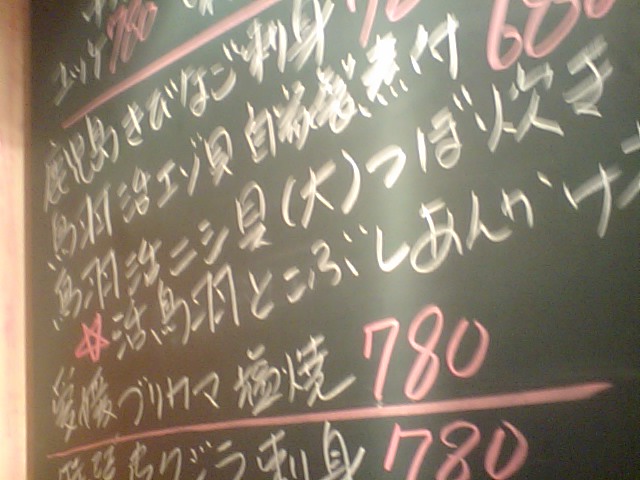 ユッケ 780
鹿児島きびなご刺身 680
鳥羽活エゾ貝自家製煮付
鳥羽活ニシ貝(大)つぼ炊き
☆活鳥羽とこぶしあんかけ
愛媛ブリカマ塩焼 780
クジラ刺身 780